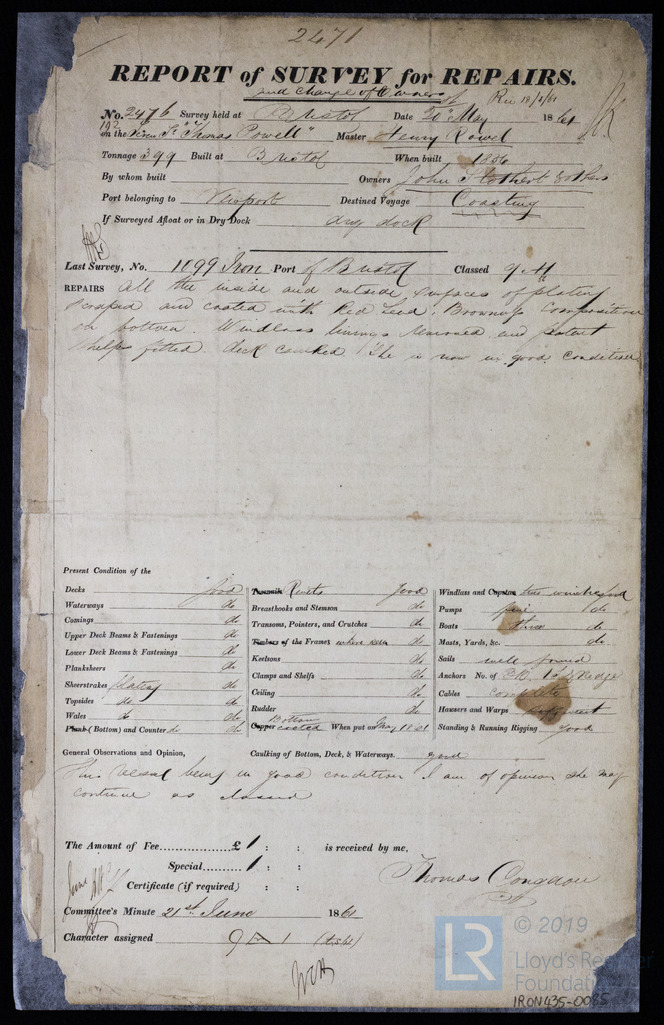 2471
REPORT of SURVEY for REPAIRS.
and change of Owners
No. 2476 Survey held at Bristol Date 20th May 1861
on the "Thomas Powell" Master Henry Rowel
Tonnage 399 Built at Bristol When built 1856
By whom built Owners John
Port belonging to Newport Destined Voyage Coasting
If Surveyed Afloat or in Dry Dock dry dock
Last Survey, No. 1099 Iron Port of Bristol Classed 9 A1
REPAIRS all the inside and outside surfaces of plating
scraped and coated with Red Lead, Composition
on bottom. Windlass linings renewed and patent
helps fitted. deck caulked. She is now in good condition
Present Condition of the
Decks good
Waterways do
Comings do
Upper Deck Beams & Fastenings do
Lower Deck Beams & Fastenings do
Planksheers do
Sheerstrakes plating do
Topsides do do
Wales do do
Plank (Bottom) and Counter do do
Treenails Rivets good
Breasthooks and Stemson do
Transoms, Pointers, and Crutches do
Timbers of the Frames where seen do
Keelsons do
Clamps and Shelfs do
Ceiling do
Rudder do
Bottom
Copper coated When put on May 1861
Windlass and Capstan good
Pumps do
Boats three do
Masts, Yards, &c. do
Sails well found
Anchors No. of
Cables complete
Hawsers and Warps sufficient
Standing & Running Rigging good
General Observations and Opinion, Caulking of Bottom, Deck, & Waterways. good
This vessel being in good condition I am of opinion she may
continue as classed
The Amount of Fee £ 1 : : is received by me,
Special 1 : :
Certificate (if required) : : Thomas Congdon
Committee's Minute 21st June 1861
Character assigned 9 A 1
© 2019
LR
Lloyd's Register
Foundation
IRON435-0085